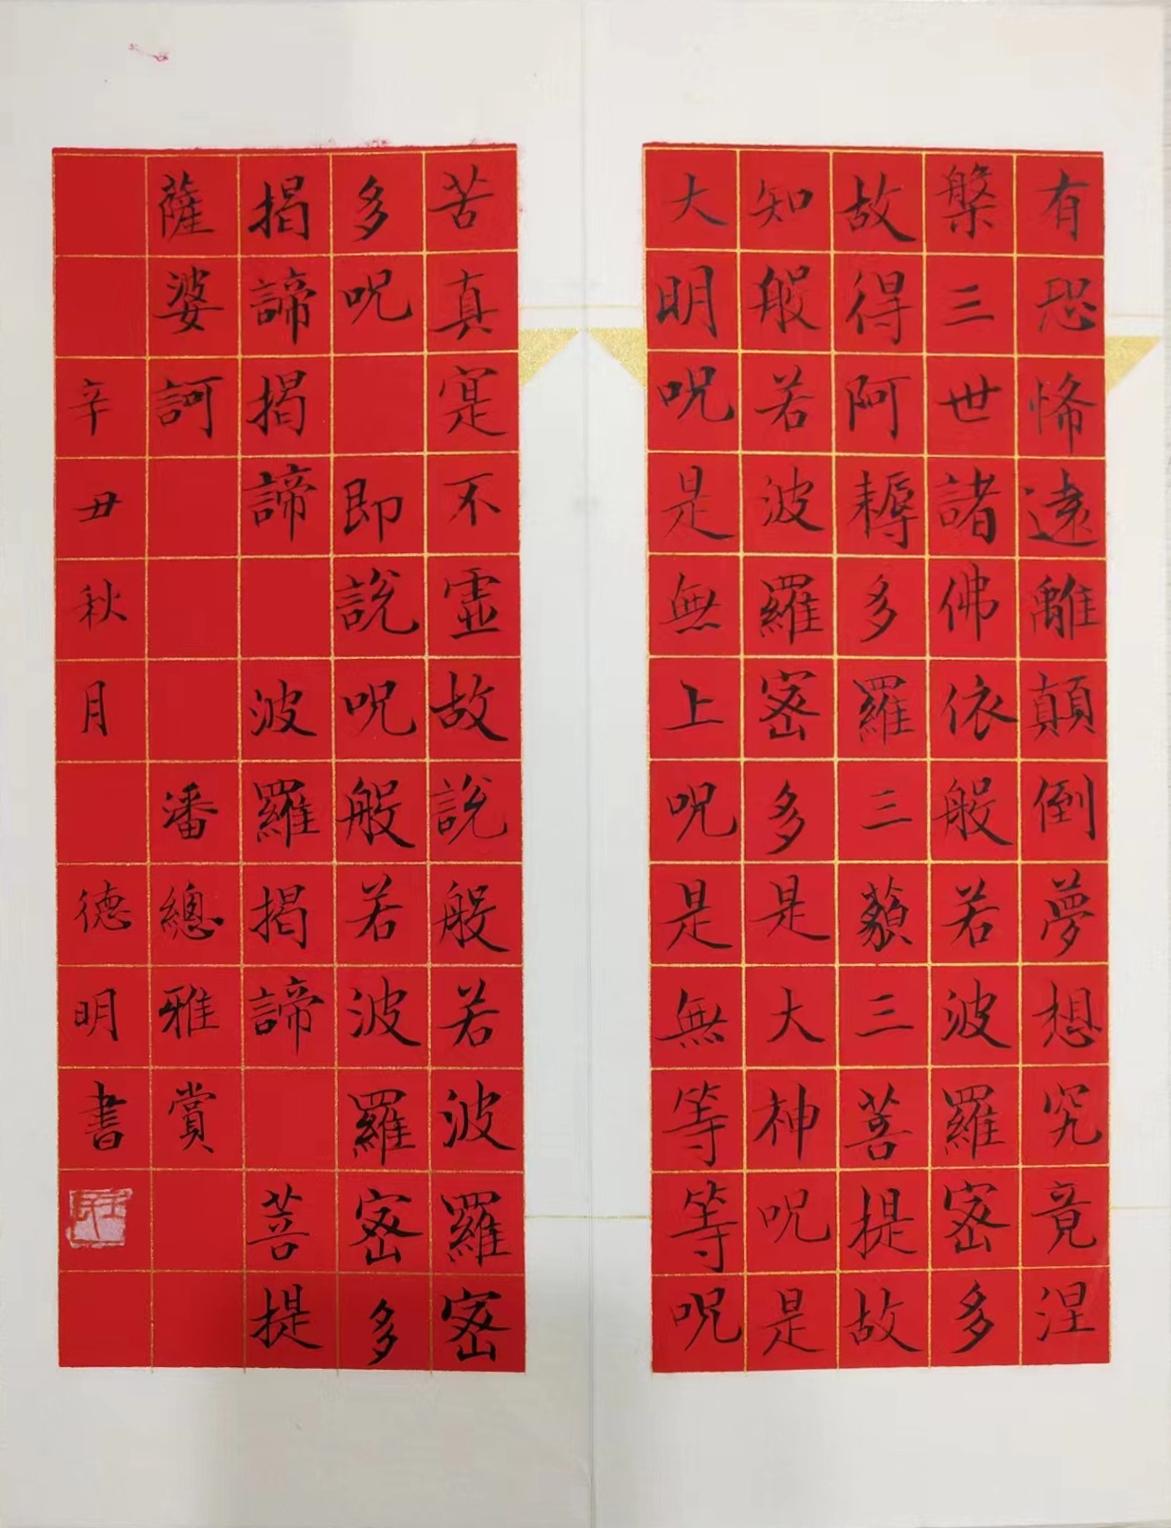 有恐怖遠離顛倒夢想究竟涅
槃三世諸佛依般若波羅密多
故得阿耨多羅三藐三菩提故
知般若波羅密多是大神呪是
大明呪是無上呪是無等等呪
苦真寔不虛故說般若波羅密
多呪 即說呪般若波羅密多
揭諦揭諦 波羅揭諦 菩提
薩婆訶 潘總雅賞
辛丑秋月 德明書